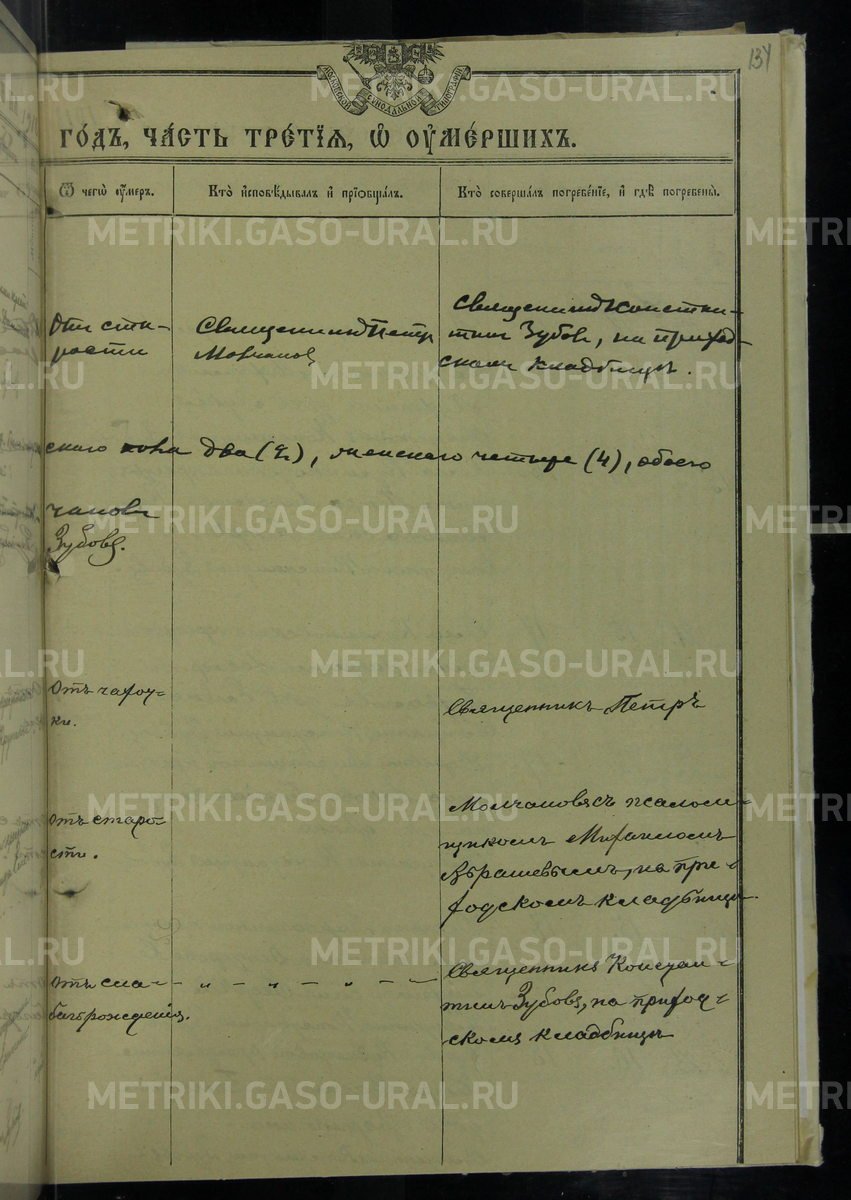 137
МОСКОВСКОЙ СѴНОДАЛЬНОЙ ТИПОГРАФІИ
ГО́ДЪ, ЧА́СТЬ ТРЕ́ТІѦ, Ѡ҆ ОУ҆МЕ́РШИХЪ.
Ѿ чегѡ̀ оу҆́меръ.
Кто̀ и҆сповѣ́дывалъ и҆ прїѡбща́лъ.
Кто̀ соверша́лъ погребе́нїе, и҆ гдѣ̀ погребены̀.
Отъ ста-
рости
Священникъ Петръ
Молчановъ
Священникъ Констан-
тинъ Зубовъ, на приход-
скомъ кладбищѣ.
скаго пола два (2), женскаго четыре (4), обоего
чановъ
Зубовъ.
Отъ чахот-
ки.
Священникъ Петръ
Отъ старо-
сти.
Молчановъ съ псалом-
щикомъ Михаиломъ
на при-
ходскомъ кладбищѣ.
Отъ сла-
баго рожденія.
- „ - „ - „ -
Священникъ Констан-
тинъ Зубовъ, на приход-
скомъ кладбищѣ
METRIKI.GASO-URAL.RU